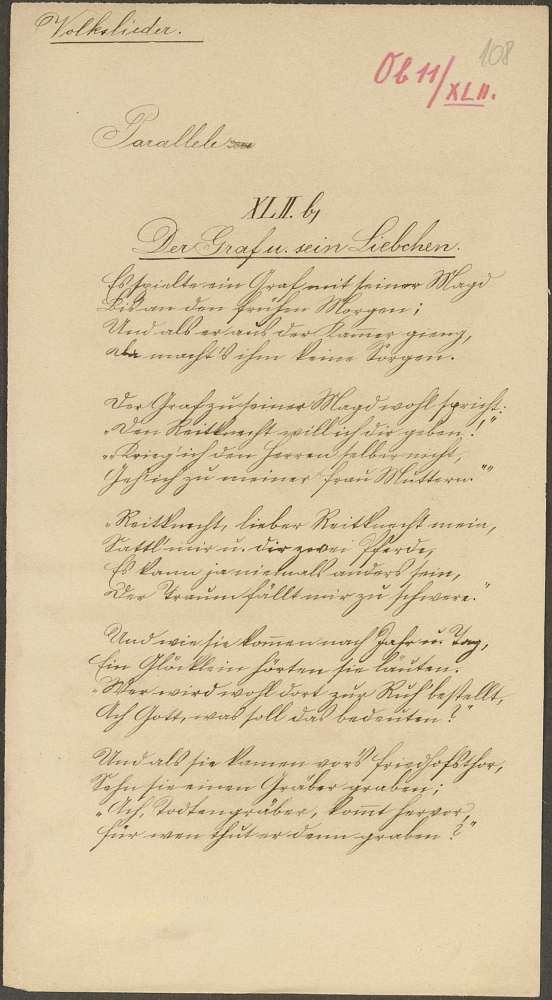 Volkslieder.
108
Ob 11/XLII.
Parallele
XLII. b,
Der Graf u. sein Liebchen.
Es spielte ein Graf mit seiner Magd
Bis an den frühen Morgen;
Und als er aus der Kammer gieng,
macht's ihm keine Sorgen.
Der Graf zu seiner Magd wohl spricht:
„Den Reitknecht will ich dir geben!“
„„Krieg' ich den Herren selber nicht,
Geh' ich zu meiner Frau Muttern.““
„Reitknecht, lieber Reitknecht mein,
Sattl' mir u. dir zwei Pferde,
Es kann ja niemals anders sein,
Der Traum fällt mir zu schwere.“
Und wie sie kom̄en nach Jahr u. Tag,
Ein Glöcklein hörten sie läuten.
„Wer wird wohl dort zur Ruh' bestellt,
Ach Gott, was soll das bedeuten?“
Und als sie kamen vor's Friedhofsthor,
Sehn sie einen Gräber graben;
„Ach, Todtengräber, kom̄t hervor,
Für wen thut er denn graben?“